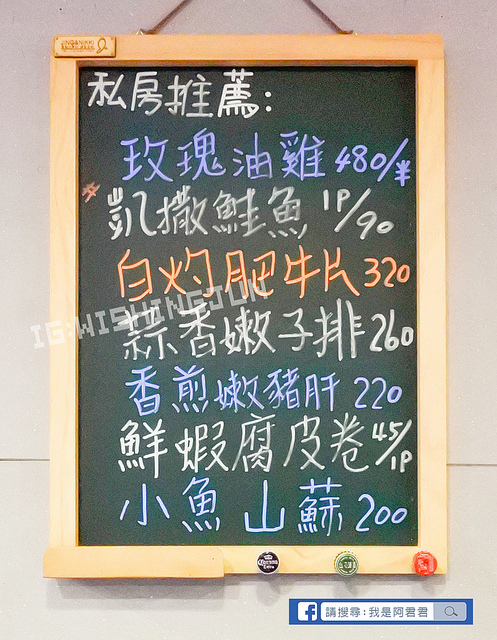 私房推薦:
玫瑰油雞 480/半
凱撒鮭魚 1P/90
白灼肥牛片 320
蒜香嫩子排 260
香煎嫩豬肝 220
鮮蝦腐皮卷 45/1P
小魚山蘇 200
IG:WISHINGJUN
Corona
Extra
f 請搜尋:我是阿君君